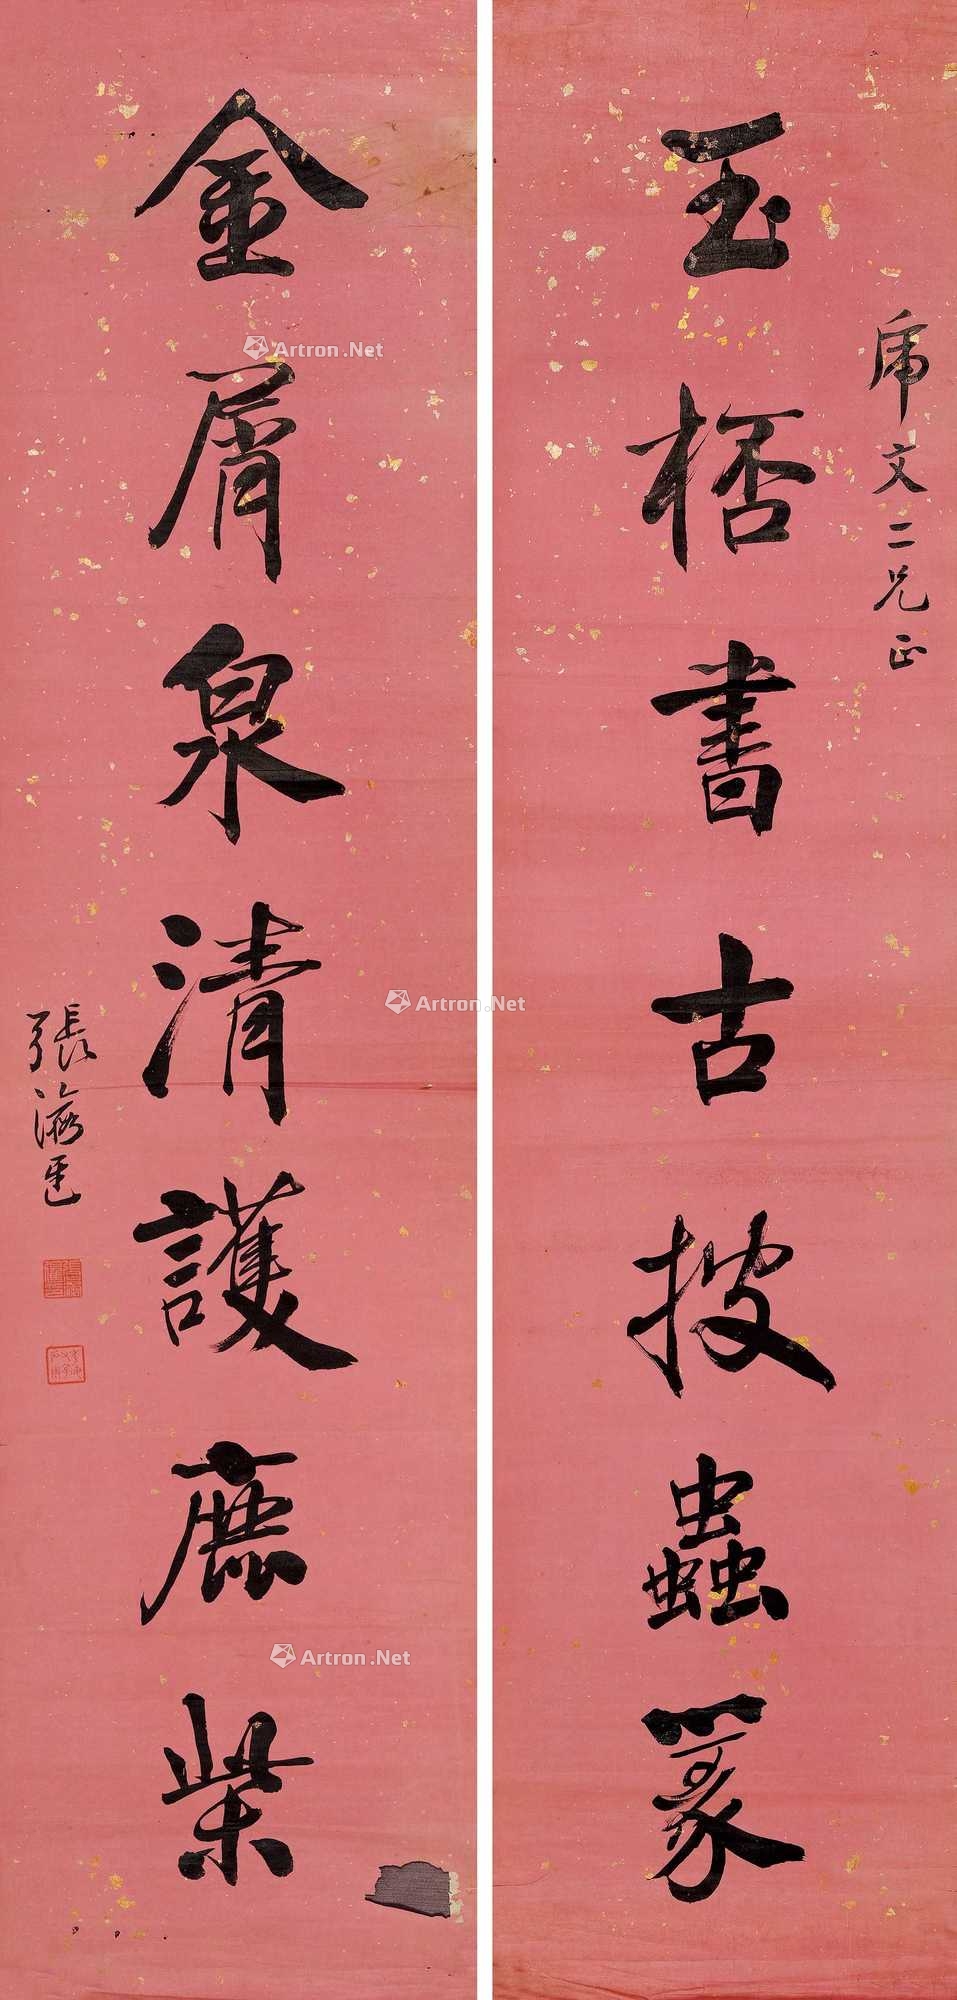 玉桮書古披蟲篆
乕文二兄正
金屑泉清護鹿柴
張
Artron.Net
Artron.Net
Artron.Net